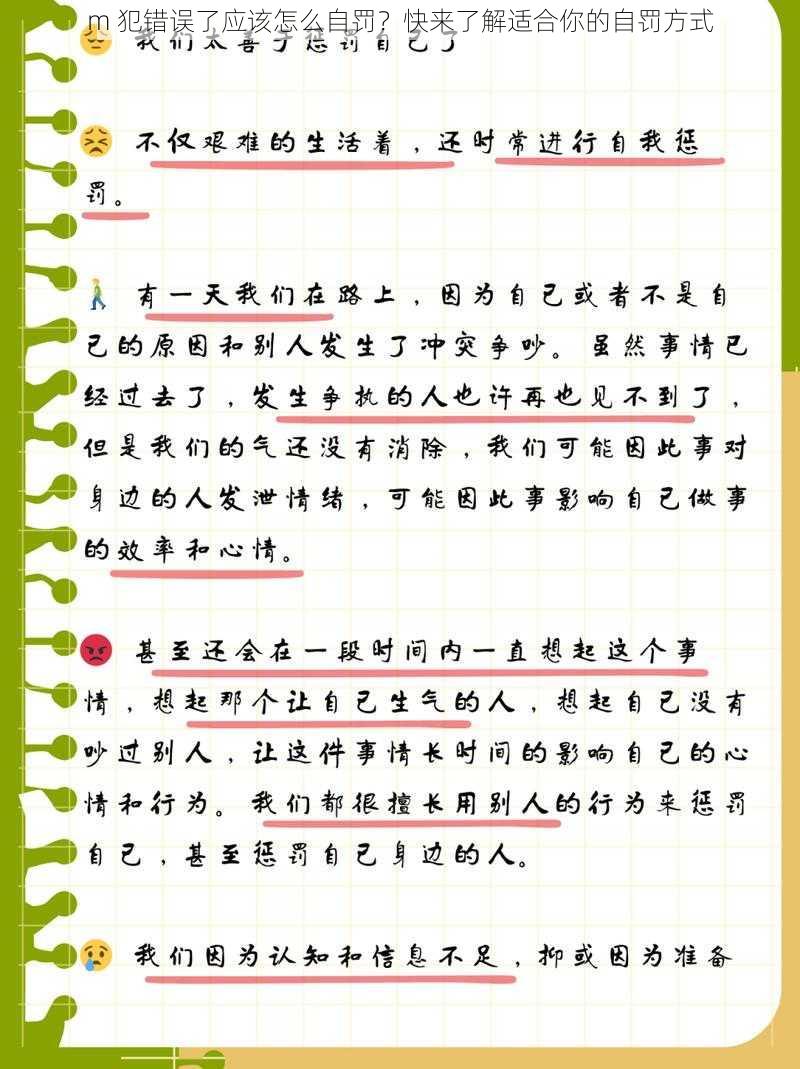 m 犯错误了应该怎么自罚？快来了解适合你的自罚方式
我们太善于惩罚自己了
不仅艰难的生活着，还时常进行自我惩
罚。
有一天我们在路上，因为自己或者不是自
己的原因和别人发生了冲突争吵。虽然事情已
经过去了，发生争执的人也许再也见不到了，
但是我们的气还没有消除，我们可能因此事对
身边的人发泄情绪，可能因此事影响自己做事
的效率和心情。
甚至还会在一段时间内一直想起这个事
情，想起那个让自己生气的人，想起自己没有
吵过别人，让这件事情长时间的影响自己的心
情和行为。我们都很擅长用别人的行为来惩罚
自己，甚至惩罚自己身边的人。
我们因为认知和信息不足，抑或因为准备